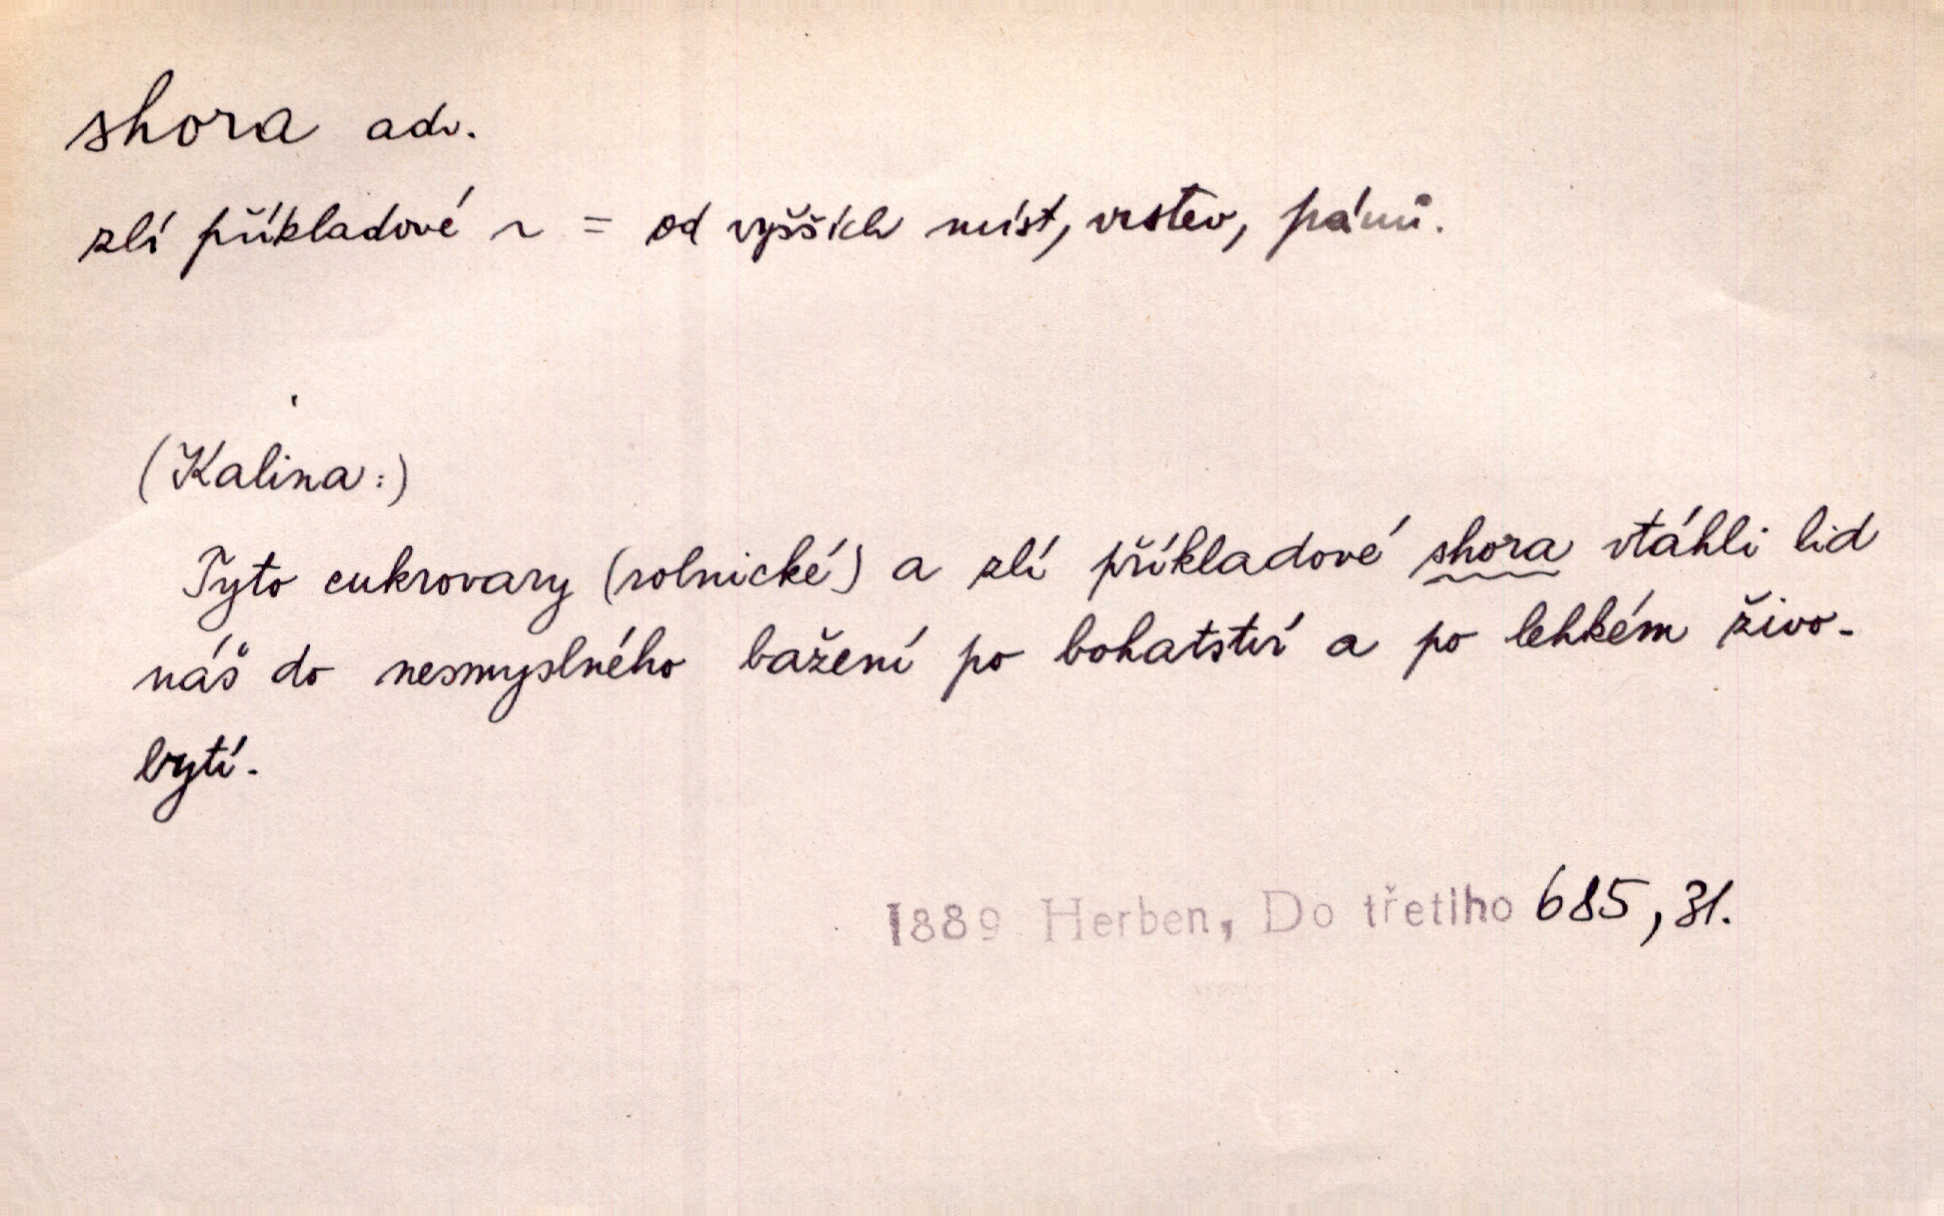 shora adv.
zlí příkladové ~ = od vyšších míst, vrstev, pánů.
(Kalina:)
Tyto cukrovary (rolnické) a zlí příkladové shora vtáhli lid
náš do nesmyslného bažení po bohatství a po lehkém živo-
bytí.
1889 Herben, Do třetího 685, 31.